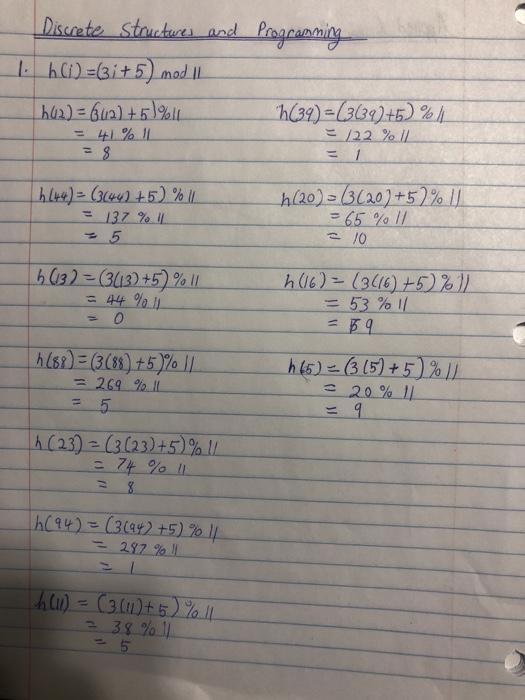 Discrete Structures and Programming
1. h(i) = (3i + 5) mod 11
h(12) = (3(12) + 5) % 11
= 41 % 11
= 8
h(44) = (3(44) + 5) % 11
= 137 % 11
= 5
h(13) = (3(13) + 5) % 11
= 44 % 11
= 0
h(88) = (3(88) + 5) % 11
= 269 % 11
= 5
h(23) = (3(23) + 5) % 11
= 74 % 11
= 8
h(94) = (3(94) + 5) % 11
= 287 % 11
= 1
h(11) = (3(11) + 5) % 11
= 38 % 11
= 5
h(39) = (3(39) + 5) % 11
= 122 % 11
= 1
h(20) = (3(20) + 5) % 11
= 65 % 11
= 10
h(16) = (3(16) + 5) % 11
= 53 % 11
= 9
h(5) = (3(5) + 5) % 11
= 20 % 11
= 9